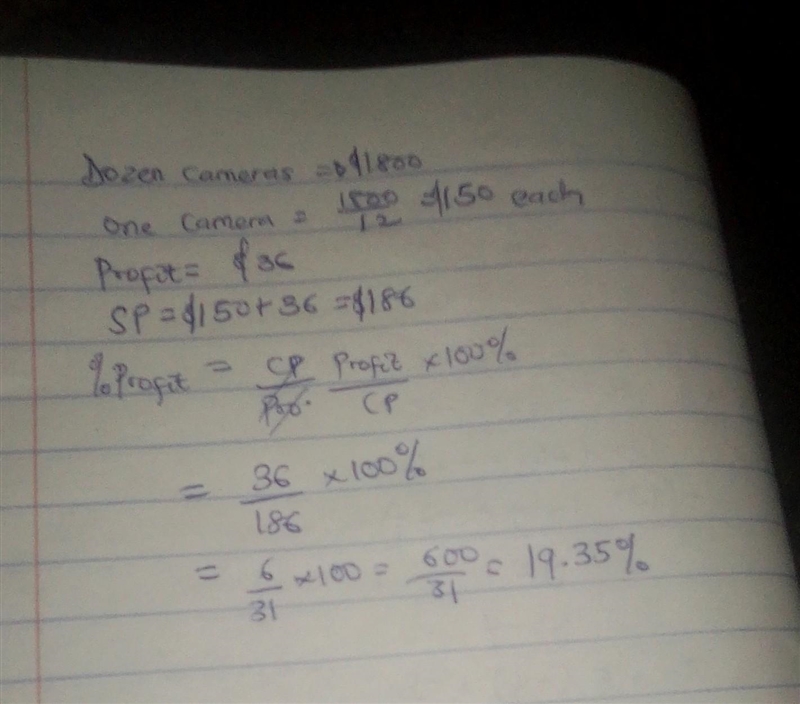 Dozen cameras = $1800
One camera = 1800/12 = $150 each
Profit = $36
SP = $150 + 36 = $186
% Profit = Profit/CP × 100%
= 36/186 × 100%
= 6/31 × 100 = 600/31 = 19.35%